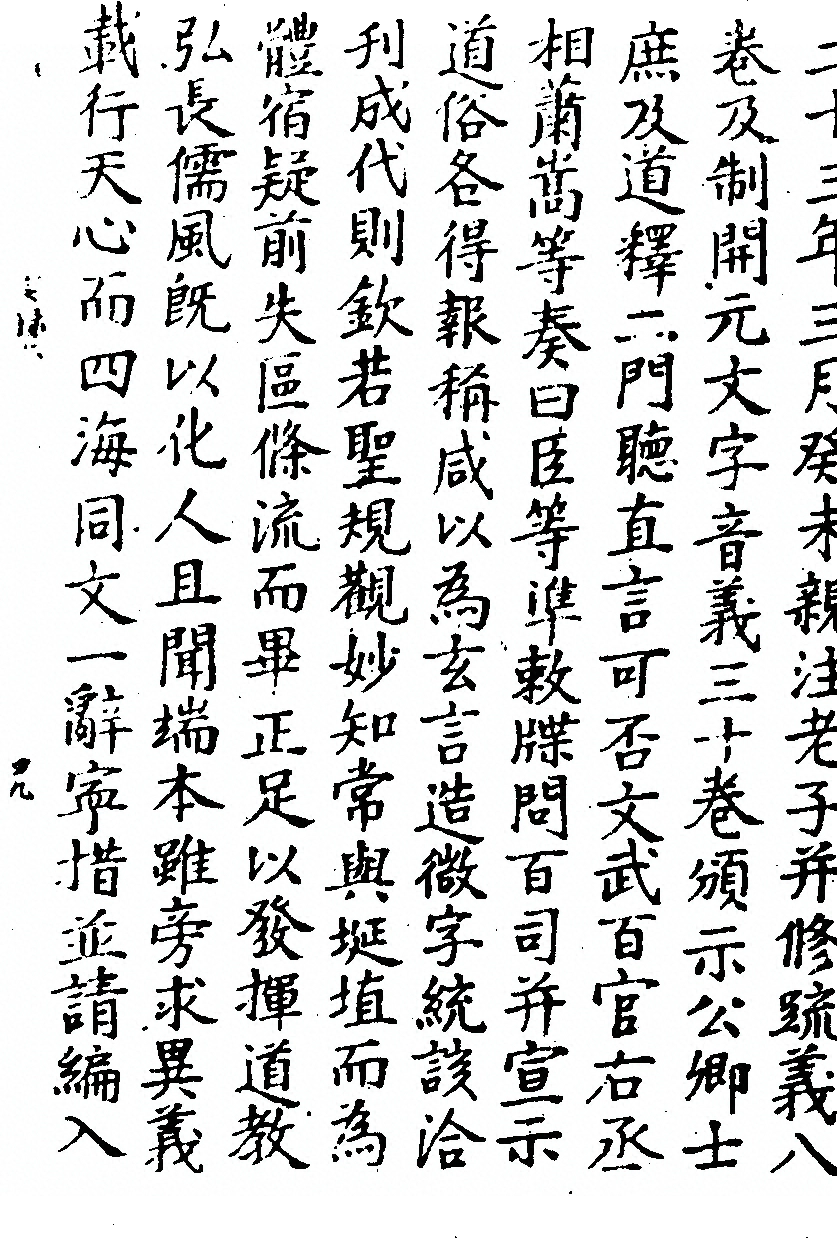 二十三年三月癸未親注老子并修䟽義八
卷及制開元文字音義三十卷頒示公卿士
庶及道釋二門聽直言可否文武百官右丞
相蕭嵩等奏曰臣等準敕牒問百司并宣示
道俗各得報稱咸以為玄言造微字統該洽
刋成代則欽若聖規觀妙知常與埏埴而為
體宿疑前失區條流而畢正足以發揮道教
弘長儒風既以化人且聞端本雖旁求異義
載行天心而四海同文一辭寜措並請編入